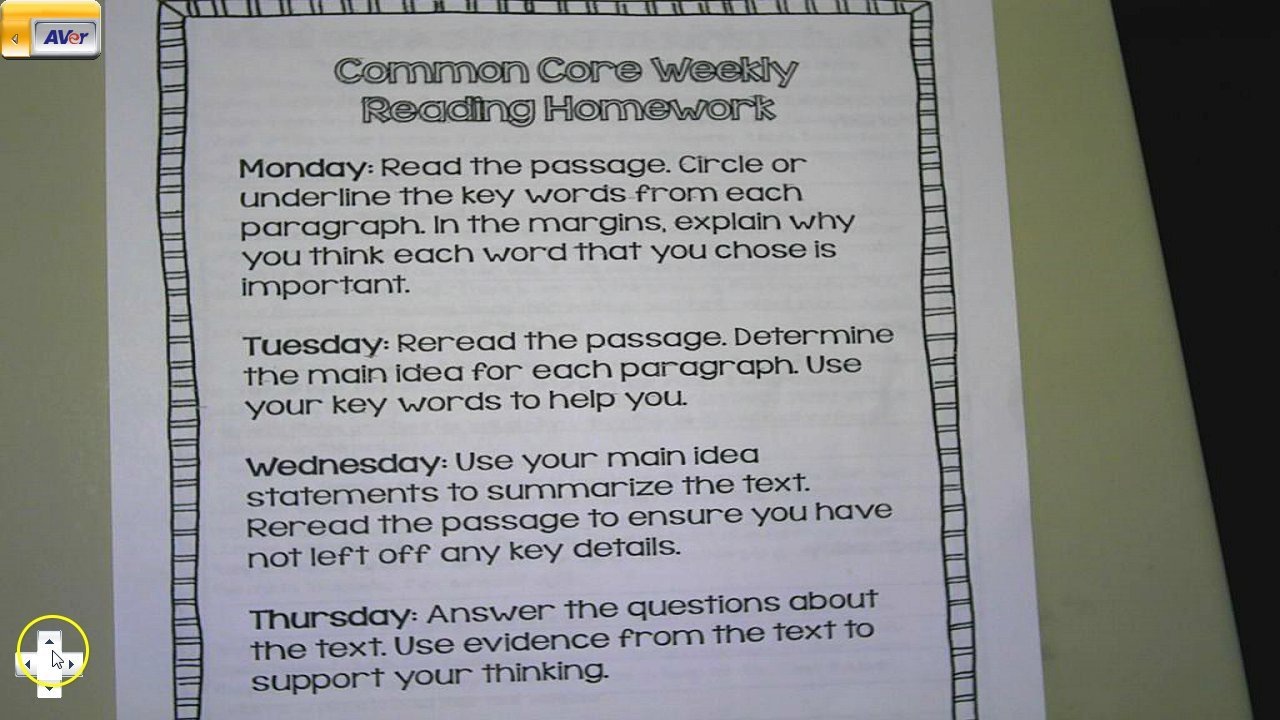 AVer
Common Core Weekly
Reading Homework
Monday: Read the passage. Circle or
underline the key words from each
paragraph. In the margins, explain why
you think each word that you chose is
important.
Tuesday: Reread the passage. Determine
the main idea for each paragraph. Use
your key words to help you.
Wednesday: Use your main idea
statements to summarize the text.
Reread the passage to ensure you have
not left off any key details.
Thursday: Answer the questions about
the text. Use evidence from the text to
support your thinking.